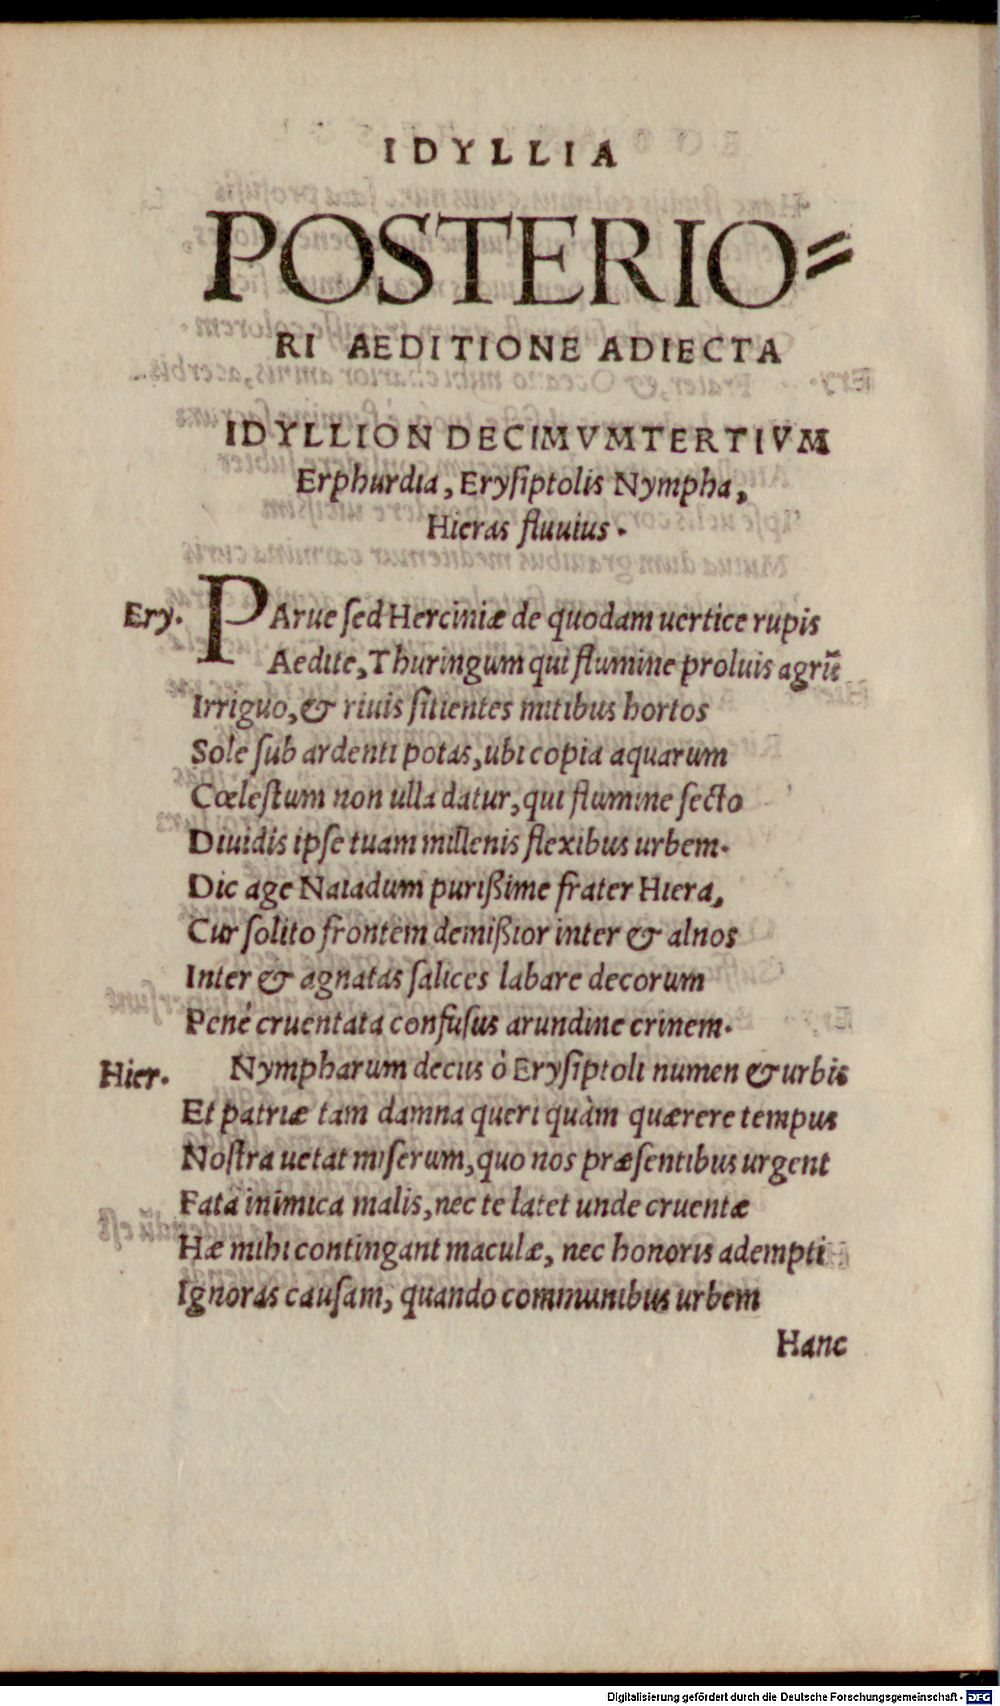 IDYLLIA
POSTERIO=
RI AEDITIONE ADIECTA
IDYLLION DECIMVMTERTIVM
Erphurdia, Eryſiptolis Nympha,
Hieras fluuius.
Ery. PArue ſed Herciniæ de quodam uertice rupis
Aedite, Thuringum qui flumine proluis agrũ
Irriguo, & riuis ſitientes mitibus hortos
Sole ſub ardenti potas, ubi copia aquarum
Cœleſtum non ulla datur, qui flumine ſecto
Diuidis ipſe tuam millenis flexibus urbem.
Dic age Naiadum purißime frater Hiera,
Cur ſolito frontem demißior inter & alnos
Inter & agnatas ſalices labare decorum
Penè cruentata confuſus arundine crinem.
Hier. Nympharum decus ò Eryſiptoli numen & urbis
Et patriæ tam damna queri quàm quærere tempus
Noſtra uetat miſerum, quo nos præſentibus urgent
Fata inimica malis, nec te latet unde cruentæ
Hæ mihi contingant maculæ, nec honoris adempti
Ignoras cauſam, quando communibus urbem
Hanc
Digitalisierung gefördert durch die Deutsche Forschungsgemeinschaft - DFG